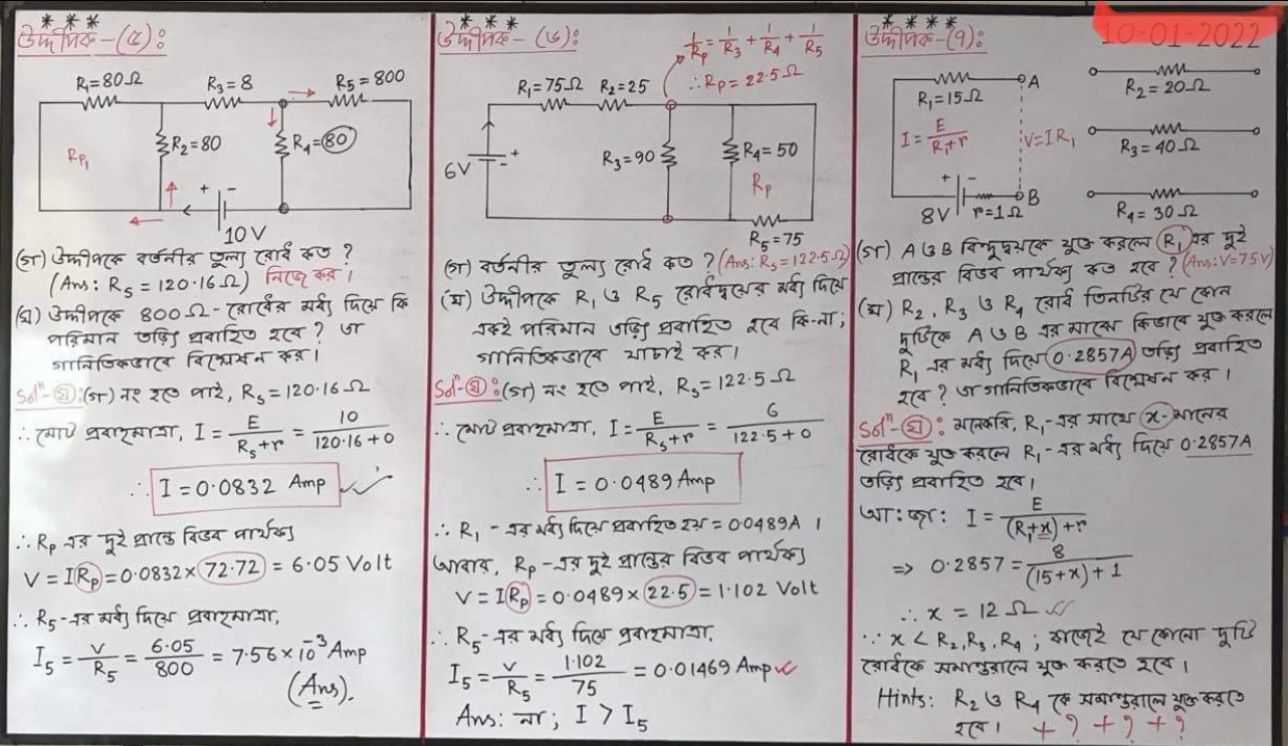 * * *
উদ্দীপক-(৫):
R₁=80Ω
R₃=8
R₅=800
R₂=80
R₄=80
Rp₁
+ -
10V
(গ) উদ্দীপকে বর্তনীর তুল্য রোধ কত?
(Ans: Rs = 120.16Ω) নিজে কর।
(ঘ) উদ্দীপকে 800Ω-রোধের মধ্য দিয়ে কি
পরিমান তড়িৎ প্রবাহিত হবে? তা
গানিতিকভাবে বিশ্লেষন কর।
Solⁿ-(ঘ):(গ) নং হতে পাই, Rs = 120.16Ω
∴ মোট প্রবাহমাত্রা, I = E/(Rs+r) = 10/(120.16+0)
∴ I = 0.0832 Amp
∴ Rp এর দুই প্রান্তে বিভব পার্থক্য
V = IRp = 0.0832×72.72 = 6.05 Volt
∴ R₅-এর মধ্য দিয়ে প্রবাহমাত্রা,
I₅ = V/R₅ = 6.05/800 = 7.56×10⁻³ Amp
(Ans).
* * *
উদ্দীপক-(৬):
1/Rp = 1/R₃ + 1/R₄ + 1/R₅
∴ Rp = 22.5Ω
R₁=75Ω R₂=25
6V
+
-
R₃=90
R₄=50
Rp
R₅=75
(গ) বর্তনীর তুল্য রোধ কত? (Ans: Rs=122.5Ω)
(ঘ) উদ্দীপকে R₁ ও R₅ রোধদ্বয়ের মধ্য দিয়ে
একই পরিমান তড়িৎ প্রবাহিত হবে কি-না;
গানিতিকভাবে যাচাই কর।
Solⁿ-(ঘ):(গ) নং হতে পাই, Rs = 122.5Ω
∴ মোট প্রবাহমাত্রা, I = E/(Rs+r) = 6/(122.5+0)
∴ I = 0.0489 Amp
∴ R₁-এর মধ্য দিয়ে প্রবাহিত হয় = 0.0489A।
আবার, Rp-এর দুই প্রান্তের বিভব পার্থক্য
V = IRp = 0.0489×22.5 = 1.102 Volt
∴ R₅-এর মধ্য দিয়ে প্রবাহমাত্রা,
I₅ = V/R₅ = 1.102/75 = 0.01469 Amp
Ans: না; I > I₅
* * * *
উদ্দীপক-(৭):
10-01-2022
R₁=15Ω
A
R₂=20Ω
I = E/(R₁+r)
V=IR₁
R₃=40Ω
+ -
B
8V r=1Ω
R₄=30Ω
(গ) A ও B বিন্দুদ্বয়কে যুক্ত করলে R₁ এর দুই
প্রান্তের বিভব পার্থক্য কত হবে? (Ans: V=7.5V)
(ঘ) R₂, R₃ ও R₄ রোধ তিনটির যে কোন
দুটিকে A ও B এর মাঝে কিভাবে যুক্ত করলে
R₁ এর মধ্য দিয়ে 0.2857A তড়িৎ প্রবাহিত
হবে? তা গানিতিকভাবে বিশ্লেষন কর।
Solⁿ-(ঘ): মনেকরি, R₁-এর সাথে x-মানের
রোধকে যুক্ত করলে R₁-এর মধ্য দিয়ে 0.2857A
তড়িৎ প্রবাহিত হবে।
আ:জা: I = E/((R₁+x)+r)
⇒ 0.2857 = 8/((15+x)+1)
∴ x = 12Ω
∵ x < R₂,R₃,R₄; কাজেই যে কোনো দুটি
রোধকে সমান্তরালে যুক্ত করতে হবে।
Hints: R₂ ও R₄ কে সমান্তরালে যুক্ত করতে
হবে। + ? + ? + ?